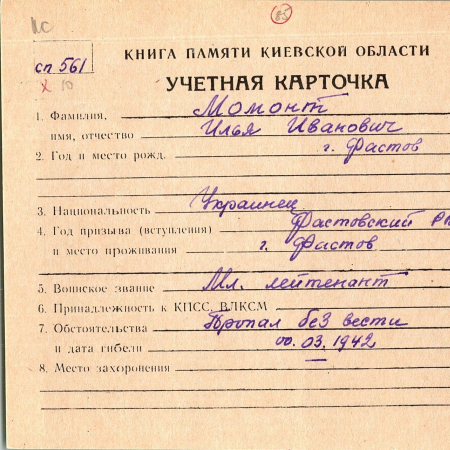 КС
85
КНИГА ПАМЯТИ КИЕВСКОЙ ОБЛАСТИ
сп 561
УЧЕТНАЯ КАРТОЧКА
х 10
1. Фамилия, Момонт
имя, отчество Илья Иванович
2. Год и место рожд. г. Фастов
3. Национальность Украинец
4. Год призыва (вступления) Фастовский РВ
и место проживания г. Фастов
5. Воинское звание Мл. лейтенант
6. Принадлежность к КПСС, ВЛКСМ
7. Обстоятельства Пропал без вести
и дата гибели 00.03.1942
8. Место захоронения